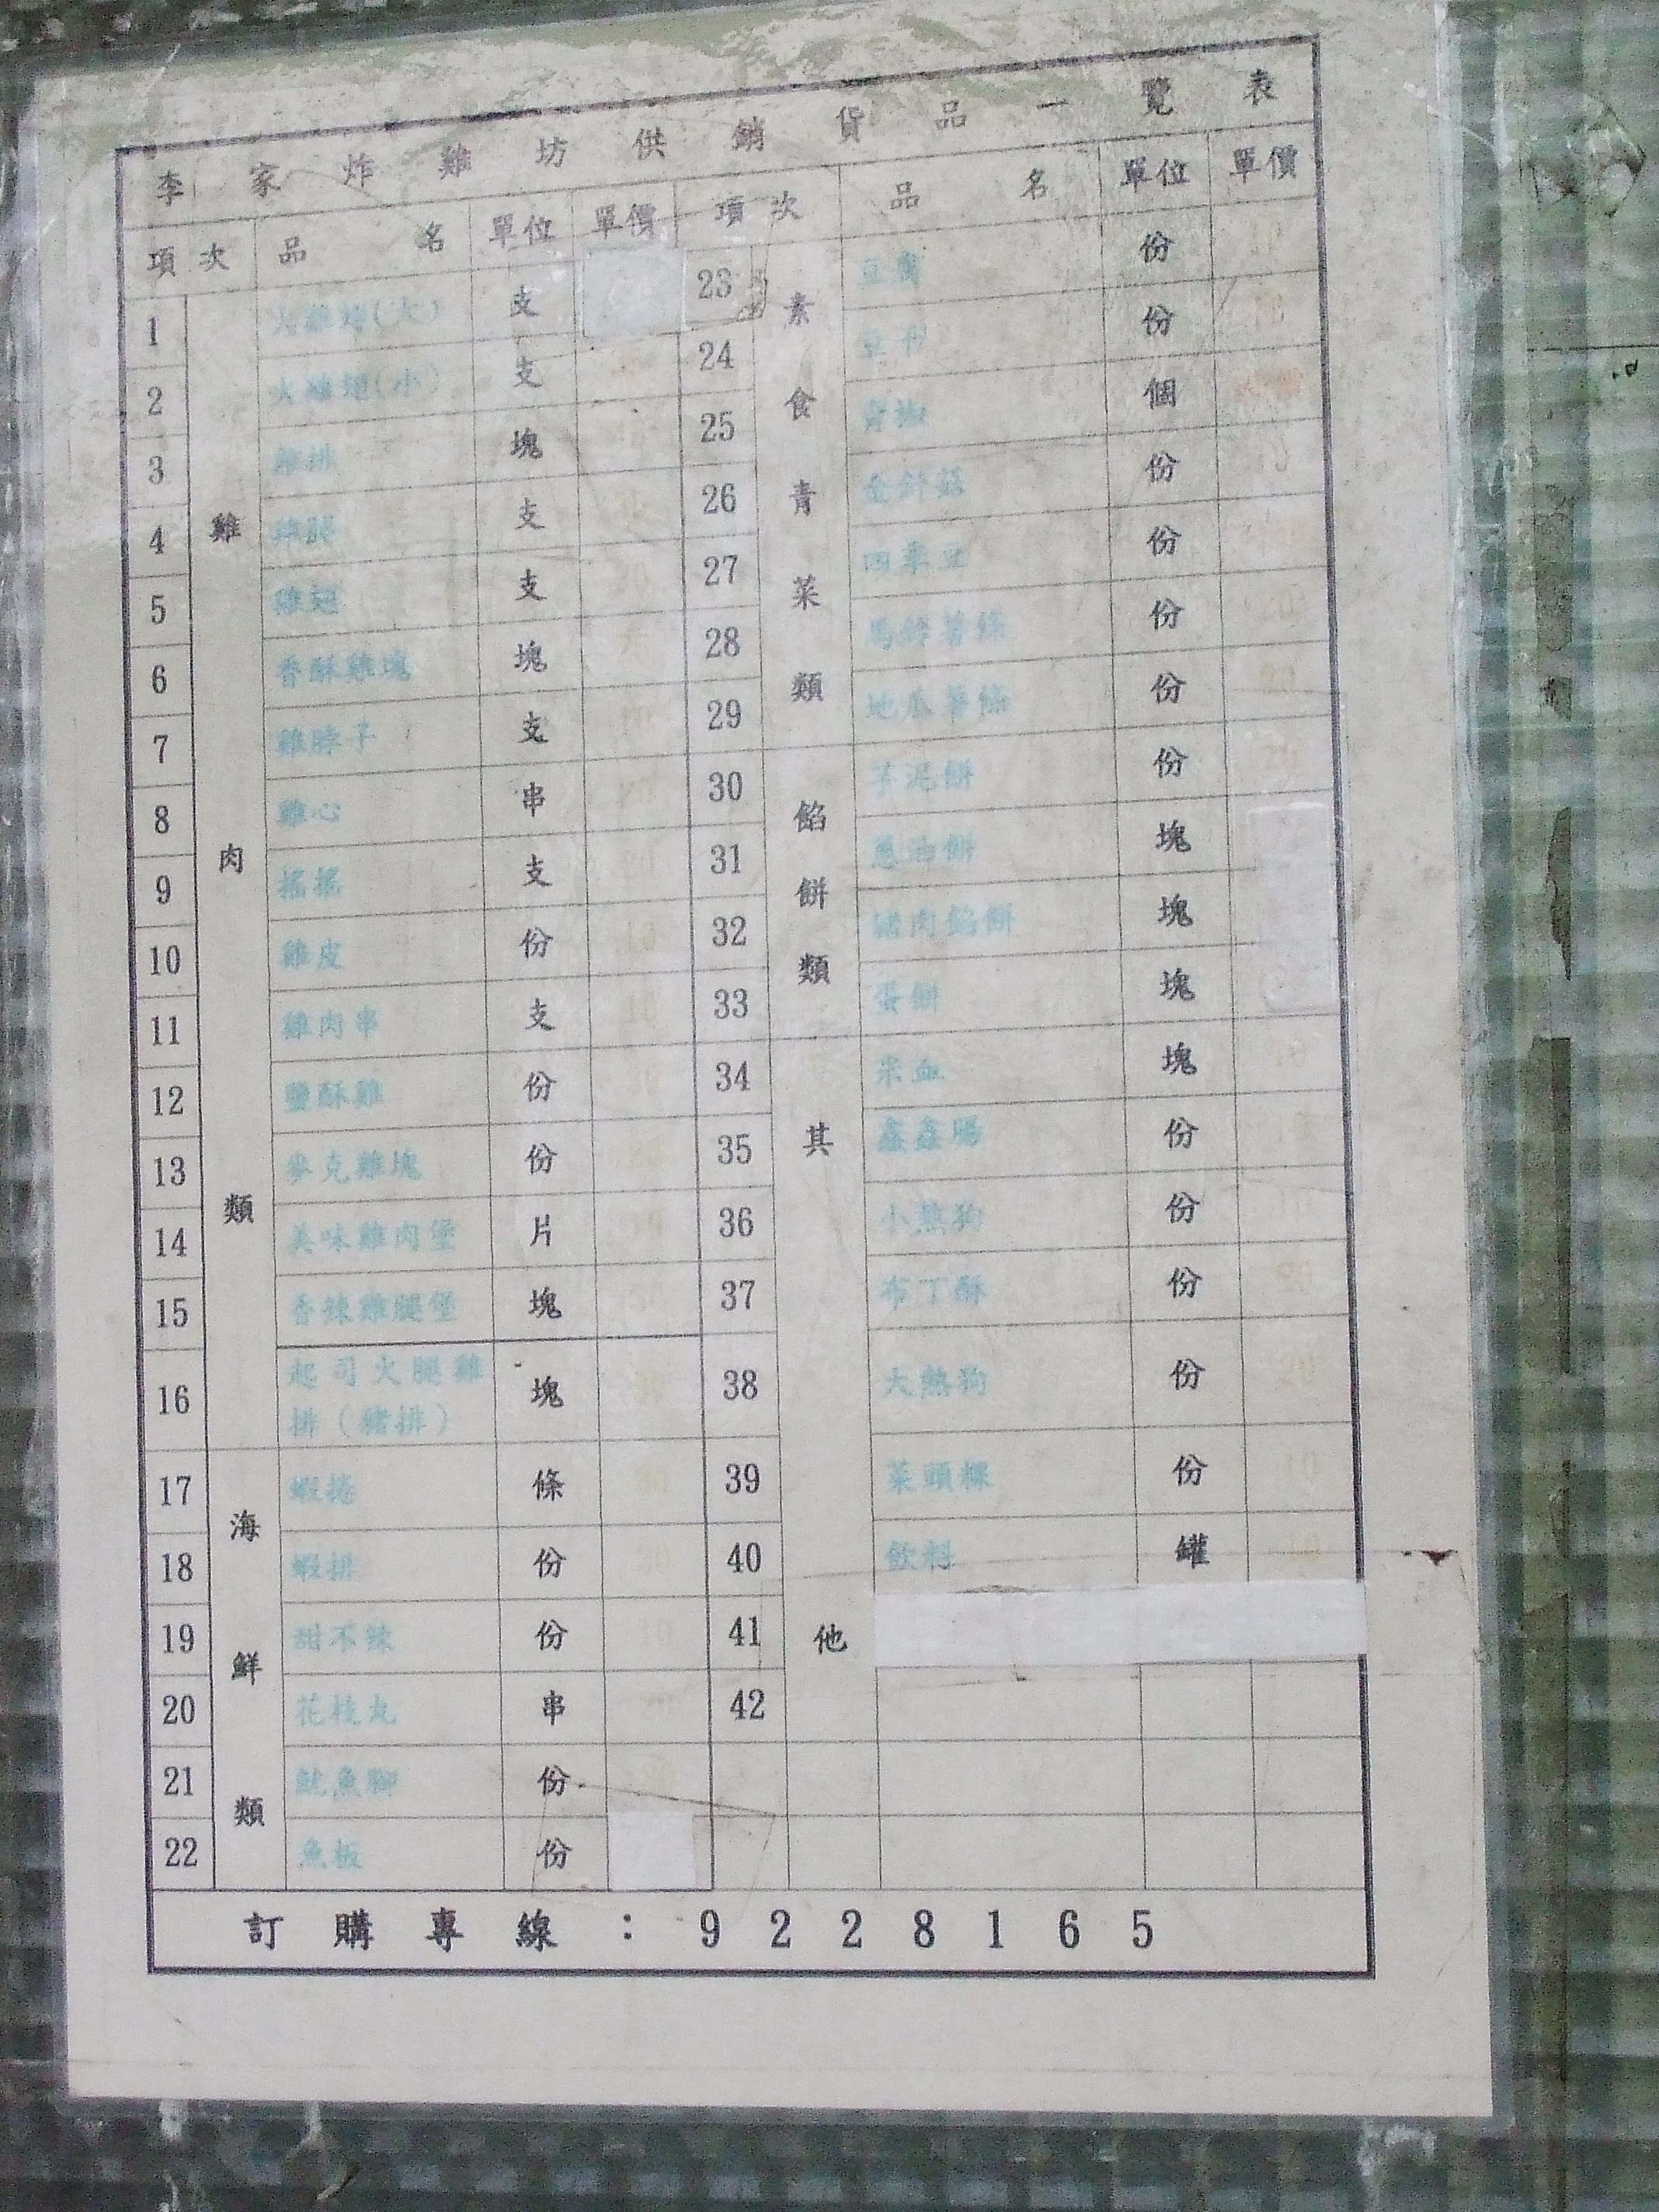 李家炸雞坊供銷貨品一覽表
項次 品名 單位 單價 項次 品名 單位 單價
雞肉類
1 火雞翅(大) 支
2 火雞翅(小) 支
3 雞排 塊
4 雞腿 支
5 雞翅 支
6 香酥雞塊 塊
7 雞脖子 支
8 雞心 串
9 搖搖 支
10 雞皮 份 10
11 雞肉串 支 10
12 鹽酥雞 份
13 麥克雞塊 份
14 美味雞肉堡 片
15 香辣雞腿堡 塊
16 起司火腿雞排(豬排) 塊
海鮮類
17 蝦捲 條
18 蝦排 份
19 甜不辣 份 10
20 花枝丸 串
21 魷魚腳 份
22 魚板 份
素食青菜類
23 豆腐 份
24 豆干 份
25 青椒 個
26 金針菇 份
27 四季豆 份
28 馬鈴薯條 份
29 地瓜薯條 份
餡餅類
30 芋泥餅 份 20
31 蔥油餅 塊
32 豬肉餡餅 塊
33 蛋餅 塊
其他
34 米血 塊 10
35 鑫鑫腸 份
36 小熱狗 份
37 布丁酥 份
38 大熱狗 份 20
39 菜頭粿 份 10
40 飲料 罐
41
42
訂購專線:9228165